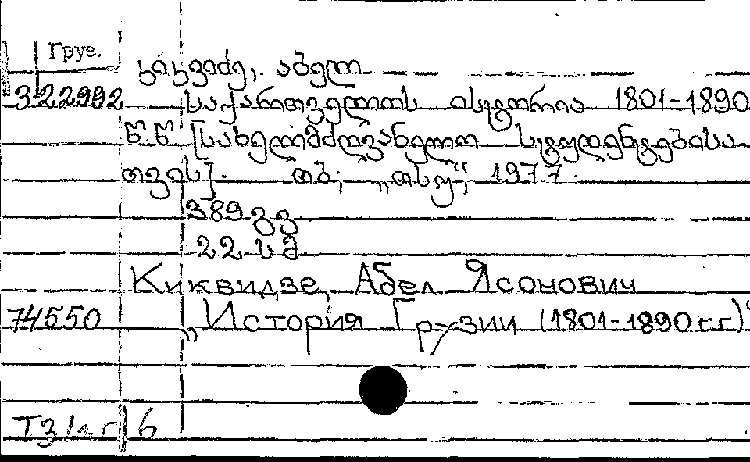 Груз.
კიკვიძე, აბელ
322992 საქართველოს ისტორია 1801-1890
წ.წ. [სახელმძღვანელო სტუდენტებისა
თვის]. თბ., „თსუ“, 1977.
389 გვ.
22 სმ
Киквидзе, Абел Ясонович
74550 „История Грузии (1801-1890 г.г)“
6